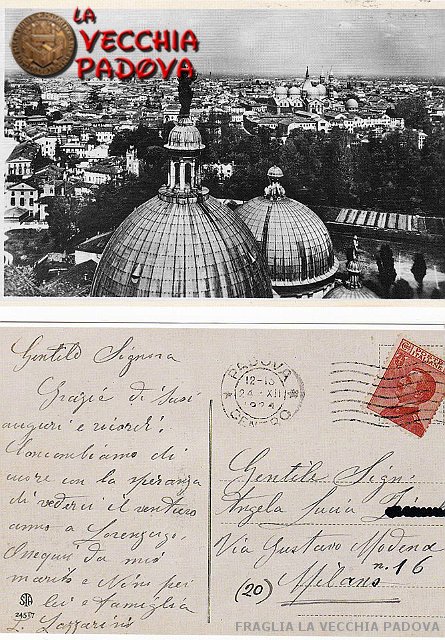 LA
VECCHIA
PADOVA
Gentile Signora
Grazie di suoi
auguri e ricordi.
Concambiamo di
cuore con la speranza
di vederci il venturo
anno a Lorenzago.
Ossequi da mio
marito e Nini per
lei e famiglia
L. Lazzarini
STA
24557
PADOVA
12-13
24 XII
1924
CENTRO
Gentile Sign:
Angela Lucia
Via Gustavo Modena
n. 16
(20) Milano
FRAGLIA LA VECCHIA PADOVA